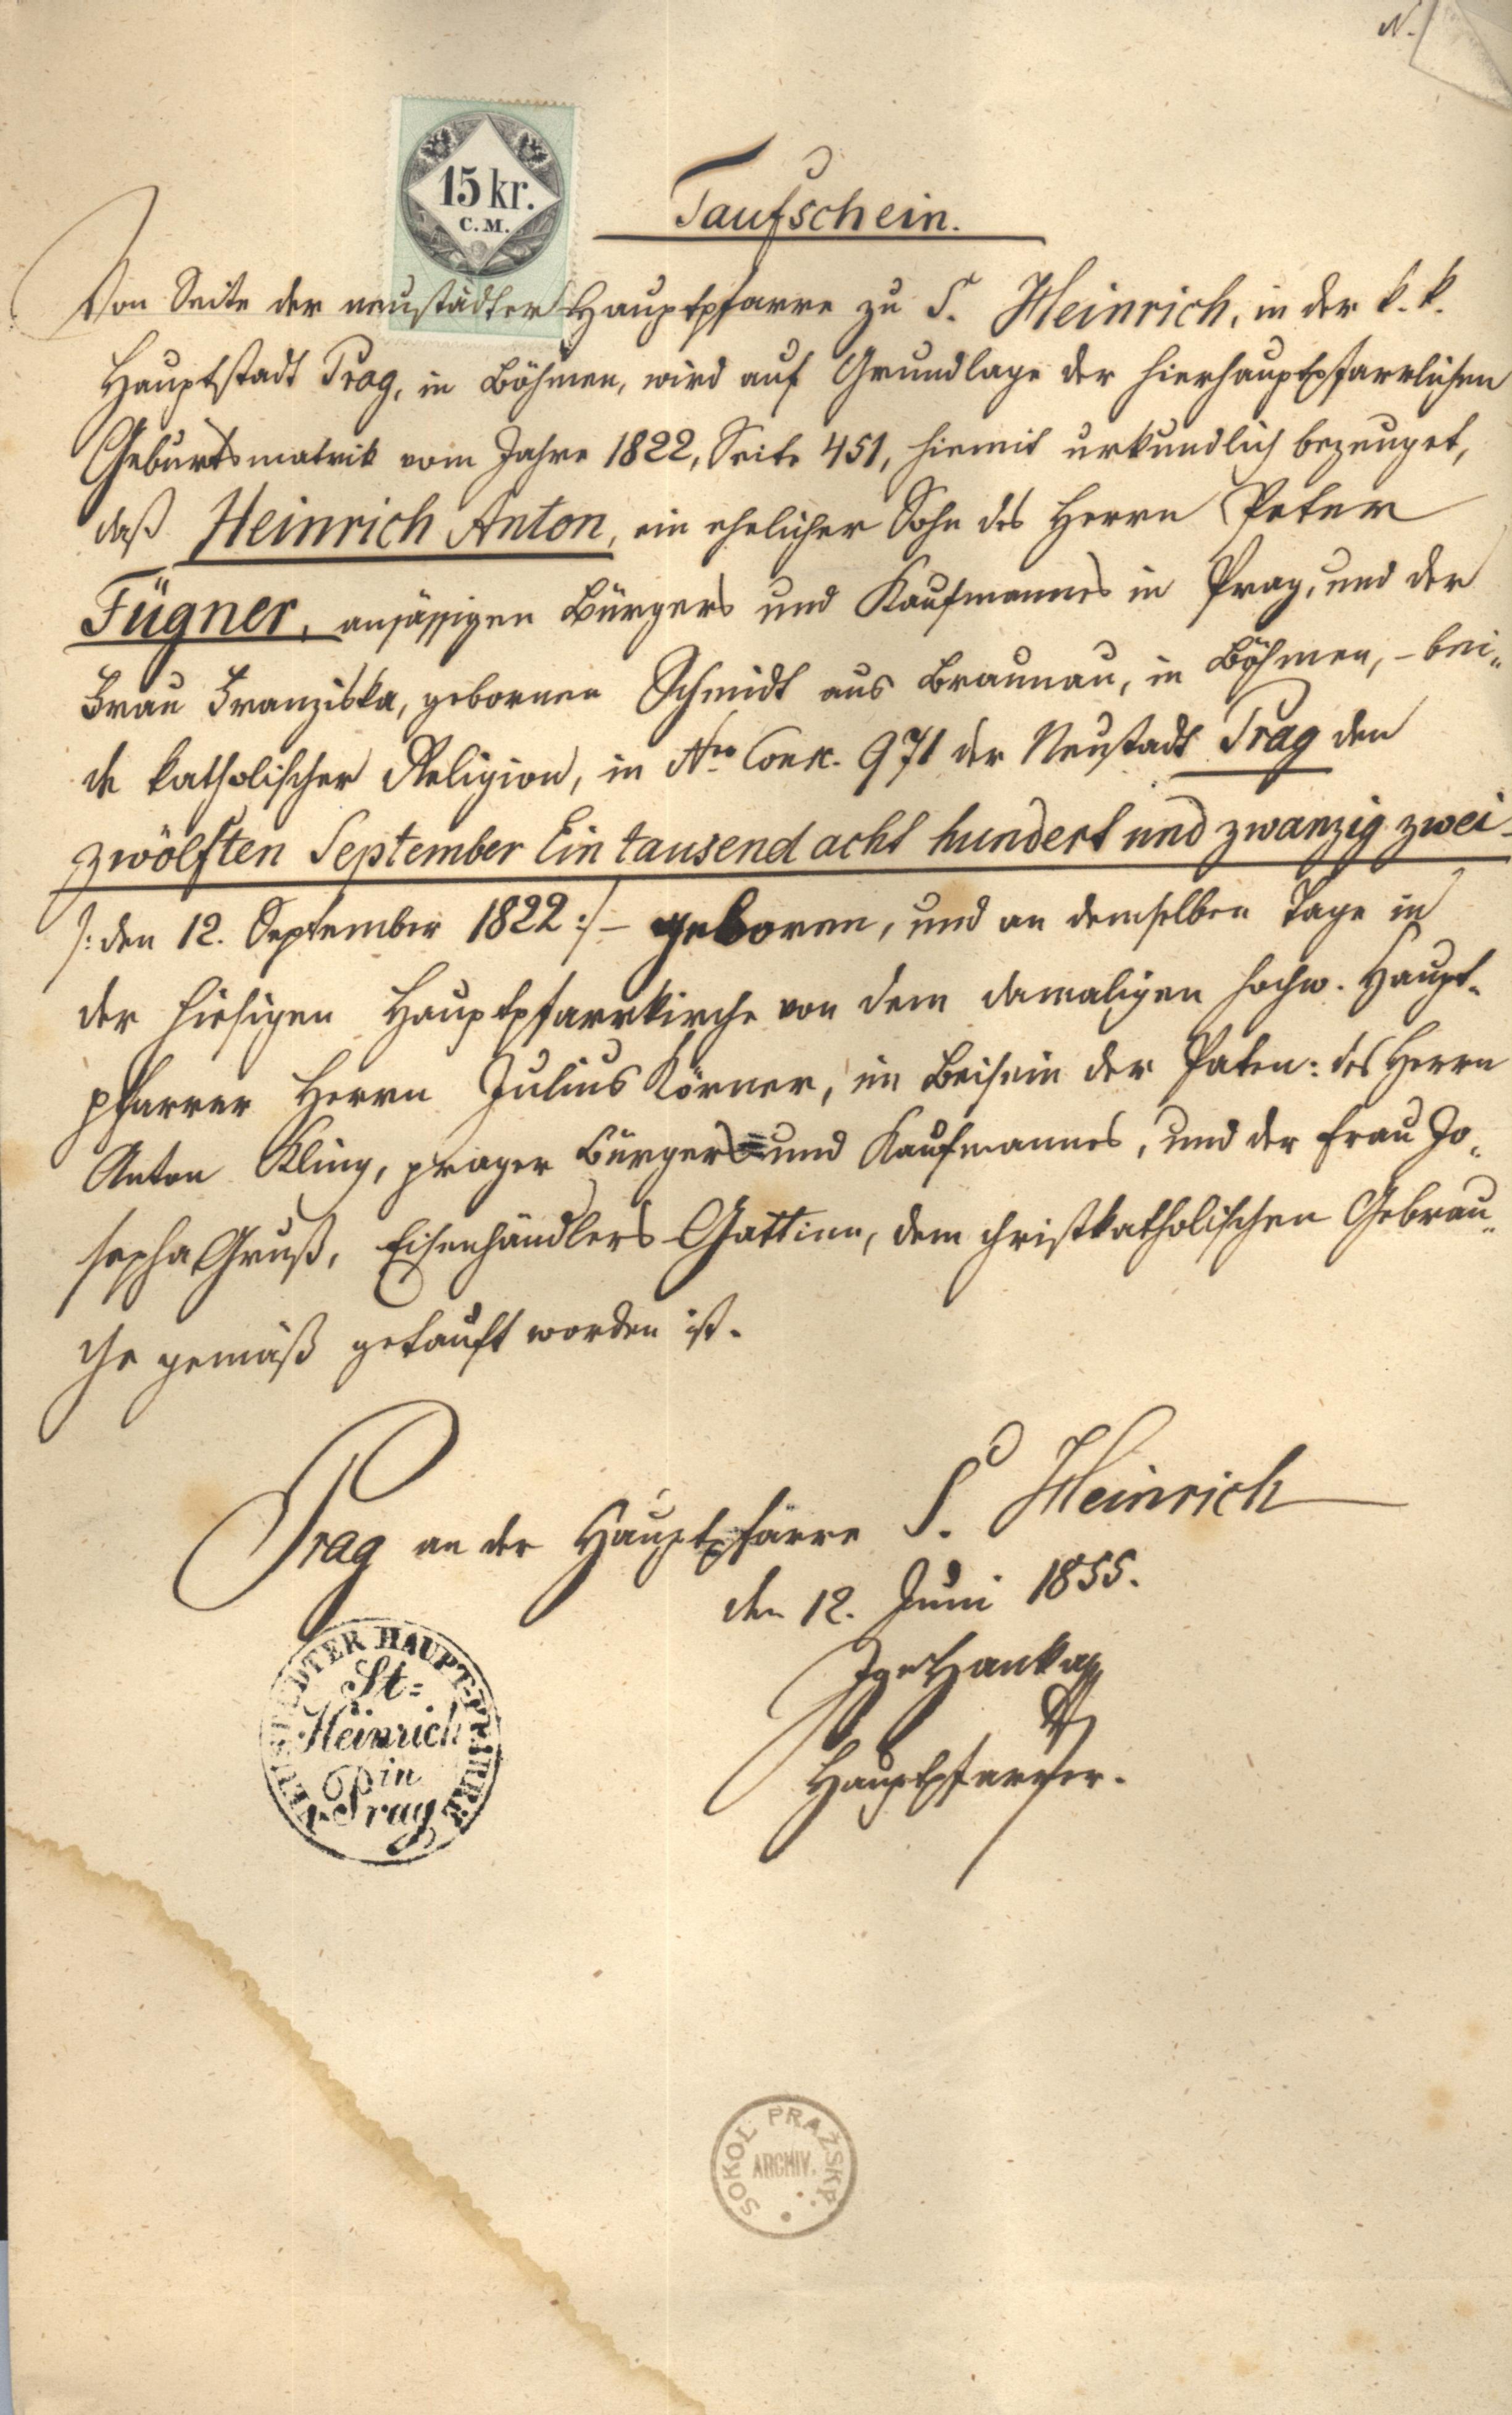 N.
15 kr.
C. M.
Taufschein.
Von Seite der neustädter Hauptpfarre zu S. Heinrich, in der k. k.
Hauptstadt Prag, in Böhmen, wird auf Grundlage der hierhauptpfarrlichen
Geburtsmatrik vom Jahre 1822, Seite 451, hiemit urkundlich bezeuget,
daß Heinrich Anton, ein ehelicher Sohn des Herrn Peter
Fügner, ansässigen Bürgers und Kaufmannes in Prag, und der
Frau Franziska, gebornen Schmidt aus Braunau, in Böhmen, – bei„
de katholischer Religion, in Nro Consc. 971 der Neustadt Prag den
zwölften September Ein tausend acht hundert und zwanzig zwei
/: den 12. September 1822 :/ – geboren, und an demselben Tage in
der hiesigen Hauptpfarrkirche von dem damaligen hochw. Haupt-
pfarrer Herrn Julius Körner, im Beisein der Paten: des Herrn
Anton Kling, prager Bürgers und Kaufmannes, und der Frau Jo„
sepha Gruß, Eisenhändlers Gattinn, dem christkatholischen Gebrau„
che gemäß getauft worden ist.
Prag an der Hauptpfarre S. Heinrich
den 12. Juni 1855.
Hanka
Hauptpfarrer.
NEUSTÄDTER HAUPT-PFARRE
St=
Heinrich
in
Prag
SOKOL PRAŽSKÝ
ARCHIV.